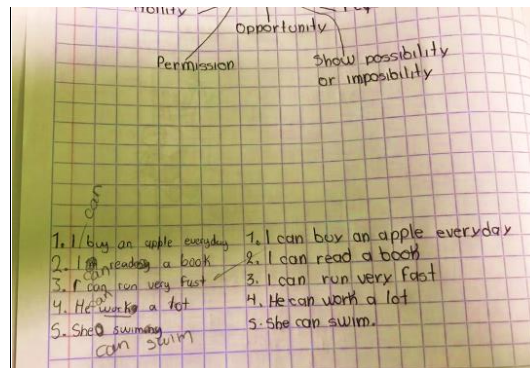 Opportunity
Permission
Show possibility
or imposibility
can
1. I/buy an apple everyday
2. I can reads a book
3. I can run very fast
4. He can works a lot
5. She swiming
can swim
1. I can buy an apple everyday
2. I can read a book
3. I can run very fast
4. He can work a lot
5. She can swim.